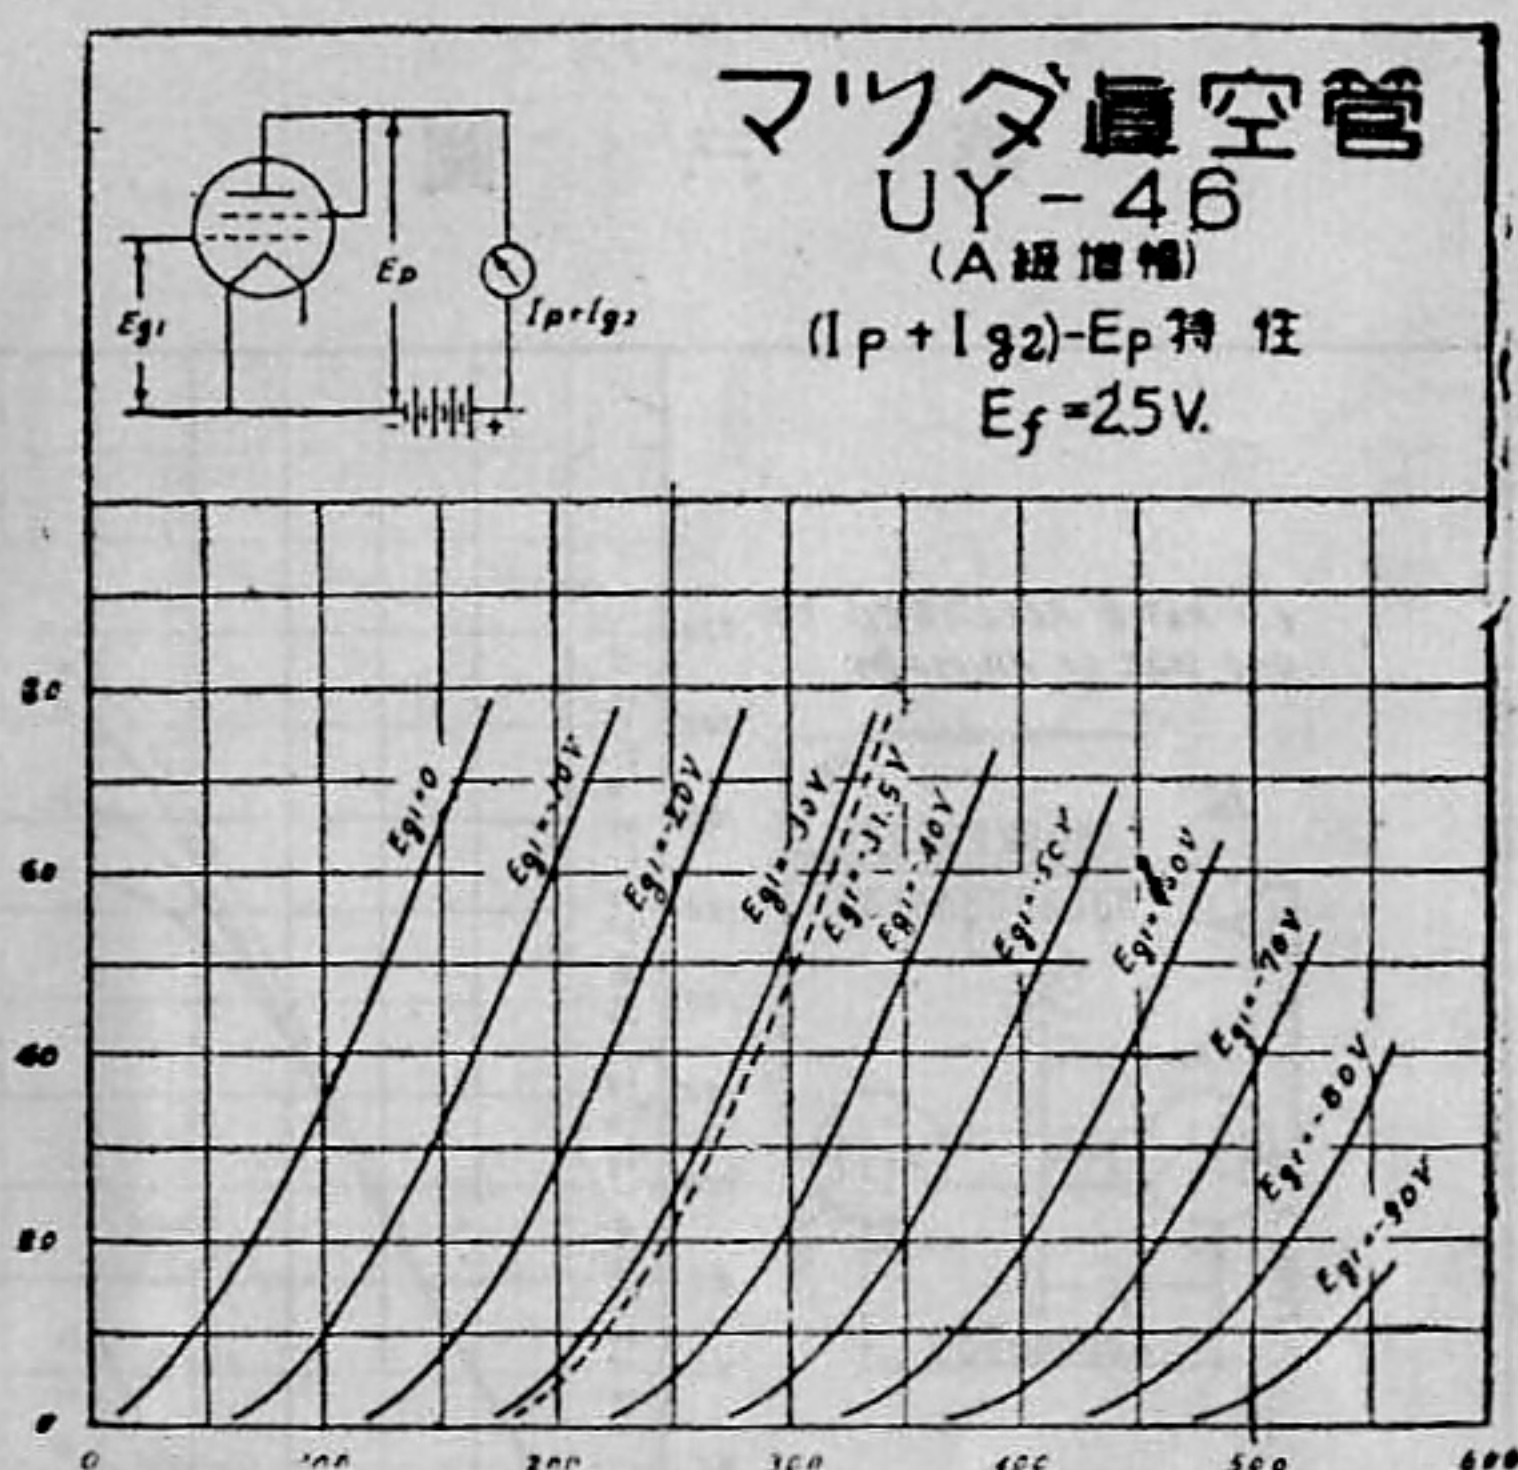 マツダ眞空管
UY-46
(A級増幅)
(Ip+Ig2)-Ep特性
Ef=2.5V.
Eg1
Ep
Ip+Ig2
- +
Eg1=0
Eg1=-10V
Eg1=-20V
Eg1=-30V
Eg1=-31.5V
Eg1=-40V
Eg1=-50V
Eg1=-60V
Eg1=-70V
Eg1=-80V
Eg1=-90V
80
60
40
20
0
0 100 200 300 400 500 600